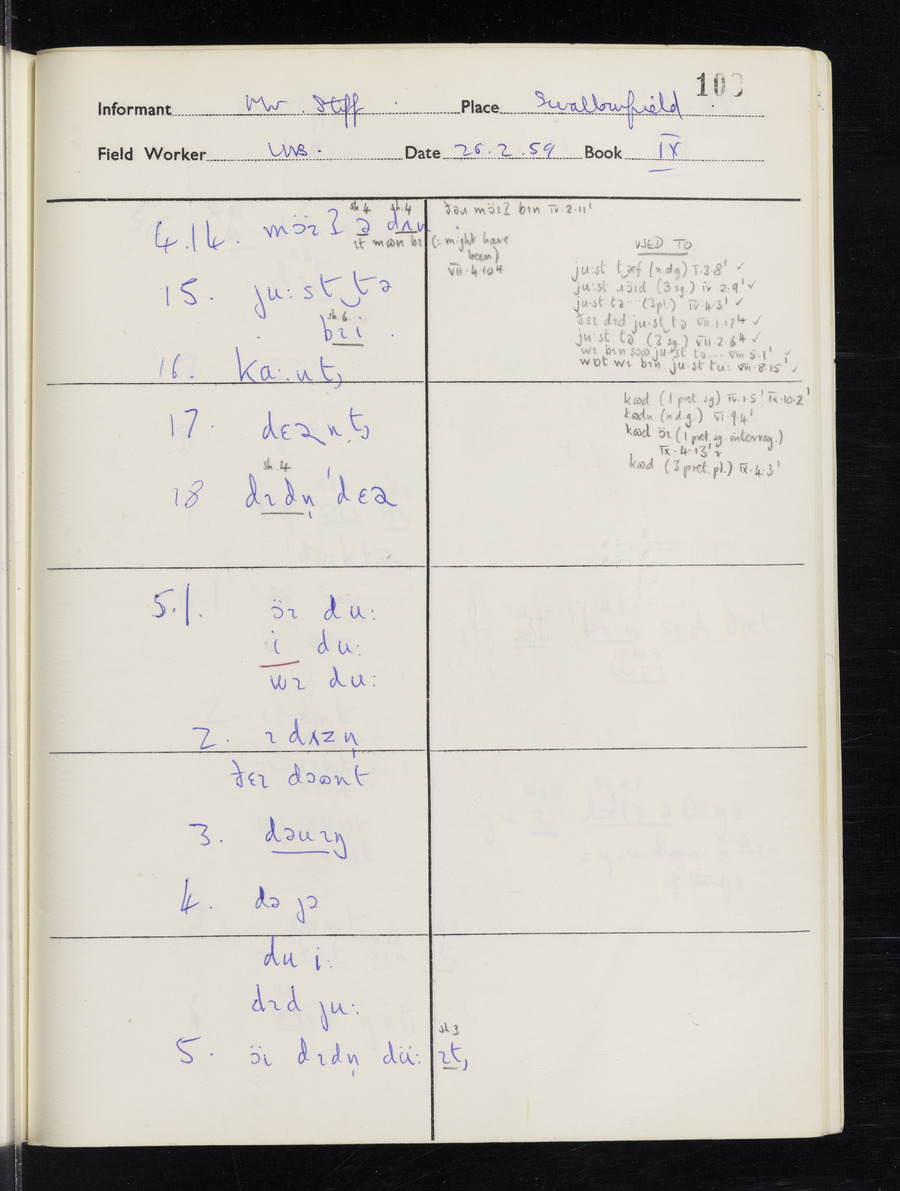 103
Informant Mr. Stiff Place Swallowfield
Field Worker WS. Date 26.2.59 Book IX
sh.4 sh.4
4.14. mɔ̈ɪʔ ə dʌn
ɪt mɑn bɪ (= might have been) VII.4.10⁴
ðəu mɔ̈ɪʔ bɪn IV.2.11'
15. ju:st tə
sh.6.
bɪi
16. ka:nt,
USED TO
ju:st təf (ndg) I.3.8' ✓
ju:st (3 sg.) IV.2.9' ✓
ju·st tə (3pl) IV.4.3' ✓
ðɛɪ dɪd ju·st tə VII.1.17⁴ ✓
ju:st tə (3 sg.) VII.2.6⁴ ✓
wɪ bɪn ju·st tə... VIII.5.1' ✓
wɒt wɪ bɪn ju:st tu: VIII.8.15' ✓
17. dɛənt,
sh.4
18 dɪdn̩ 'dɛə
kɷd (1 pret. sg) IV.1.5' IX.10.2'
kɷdn (n.d.g.) VI.9.4'
kɷd ɔ̈ɪ (1 pret. sg. interrog.)
IX.4.13'
kɷd (3 pret. pl.) IX.4.3'
5.1. ɔ̈ɪ du:
i du:
wɪ du:
2. ɪ dʌzn̩
ðɛɪ dɔɷnt
3. dəuɪŋ
4. də jə
du i:
dɪd ju:
sh.3
5. ɔ̈ɪ dɪdn̩ dü: ɪt,